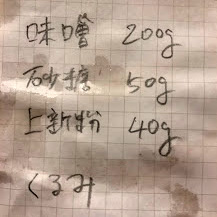 味噌 200g
砂糖 50g
上新粉 40g
くるみ